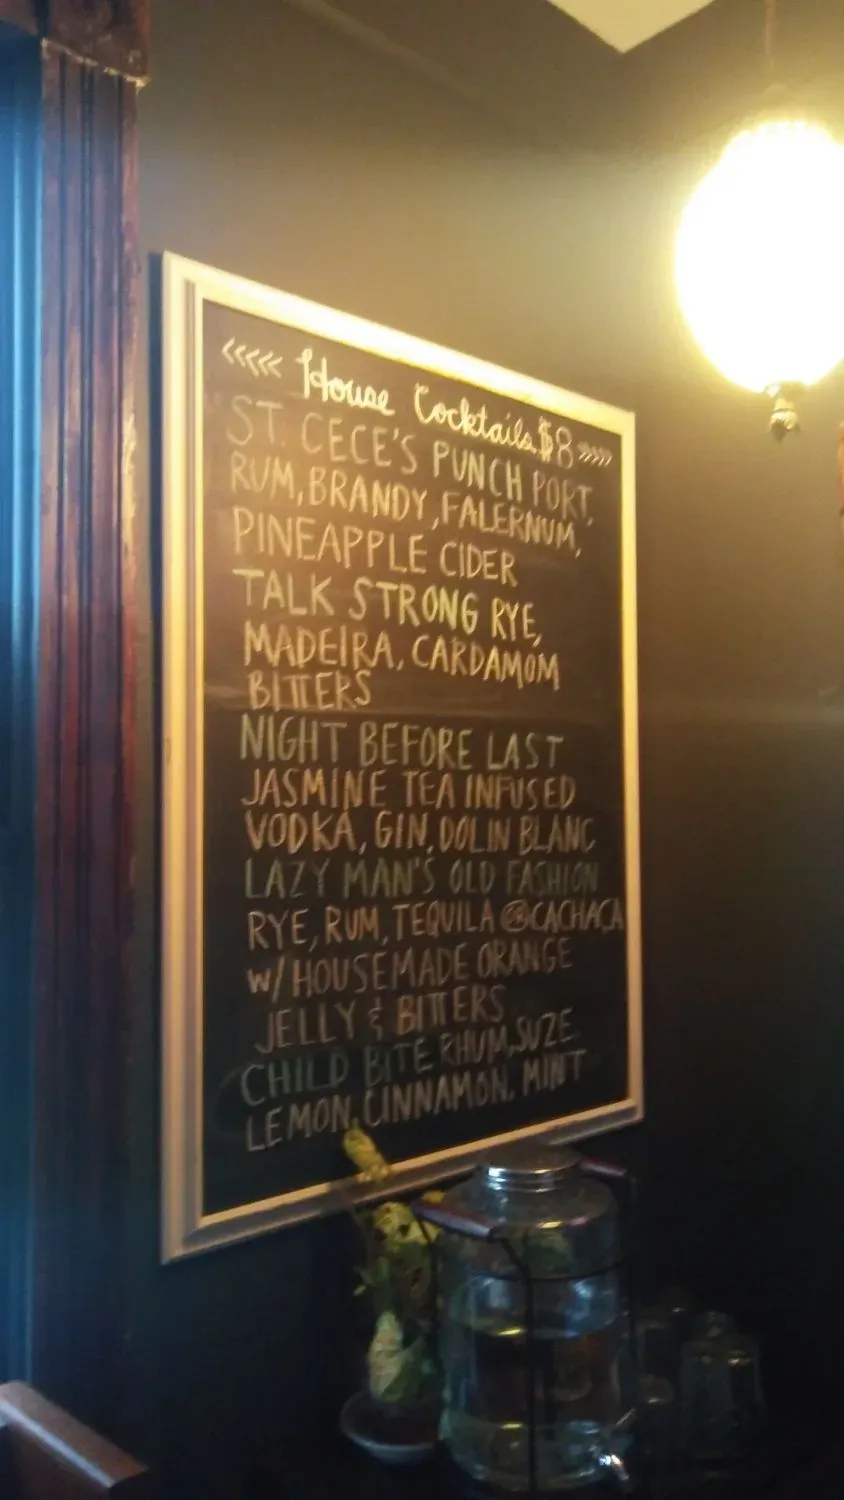 <<<<< House Cocktails $8 >>>>>
ST. CECE'S PUNCH PORT,
RUM, BRANDY, FALERNUM,
PINEAPPLE CIDER
TALK STRONG RYE,
MADEIRA, CARDAMOM
BITTERS
NIGHT BEFORE LAST
JASMINE TEA INFUSED
VODKA, GIN, DOLIN BLANC
LAZY MAN'S OLD FASHION
RYE, RUM, TEQUILA @CACHACA
w/ HOUSEMADE ORANGE
JELLY & BITTERS
CHILD BITE RHUM, SUZE,
LEMON, CINNAMON, MINT